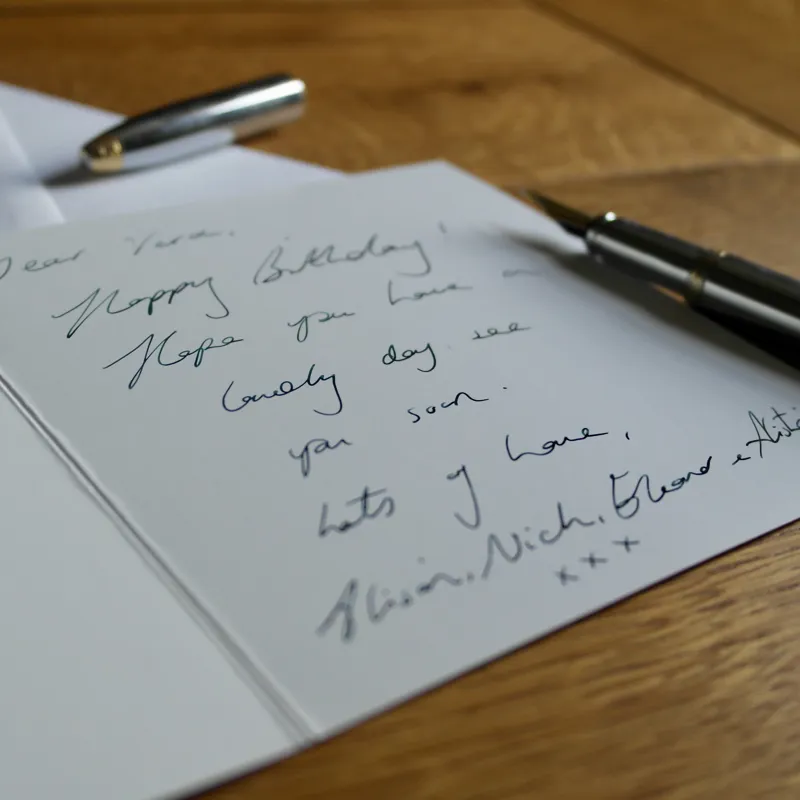 Dear
Happy Birthday!
Hope you have a
lovely day see
you soon.
Lots of love,
Alison, Nick, Eleanor &
xxx